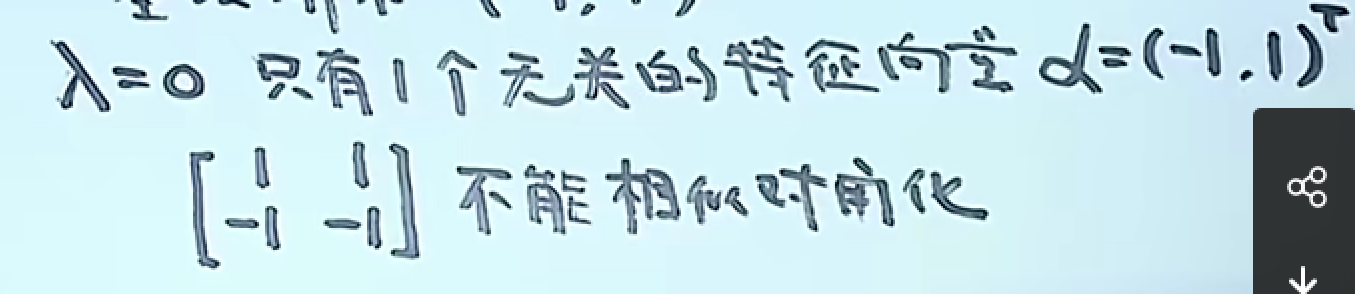 λ=0 只有1个无关的特征向量 α=(-1,1)ᵀ
[1 1
-1 -1] 不能相似对角化